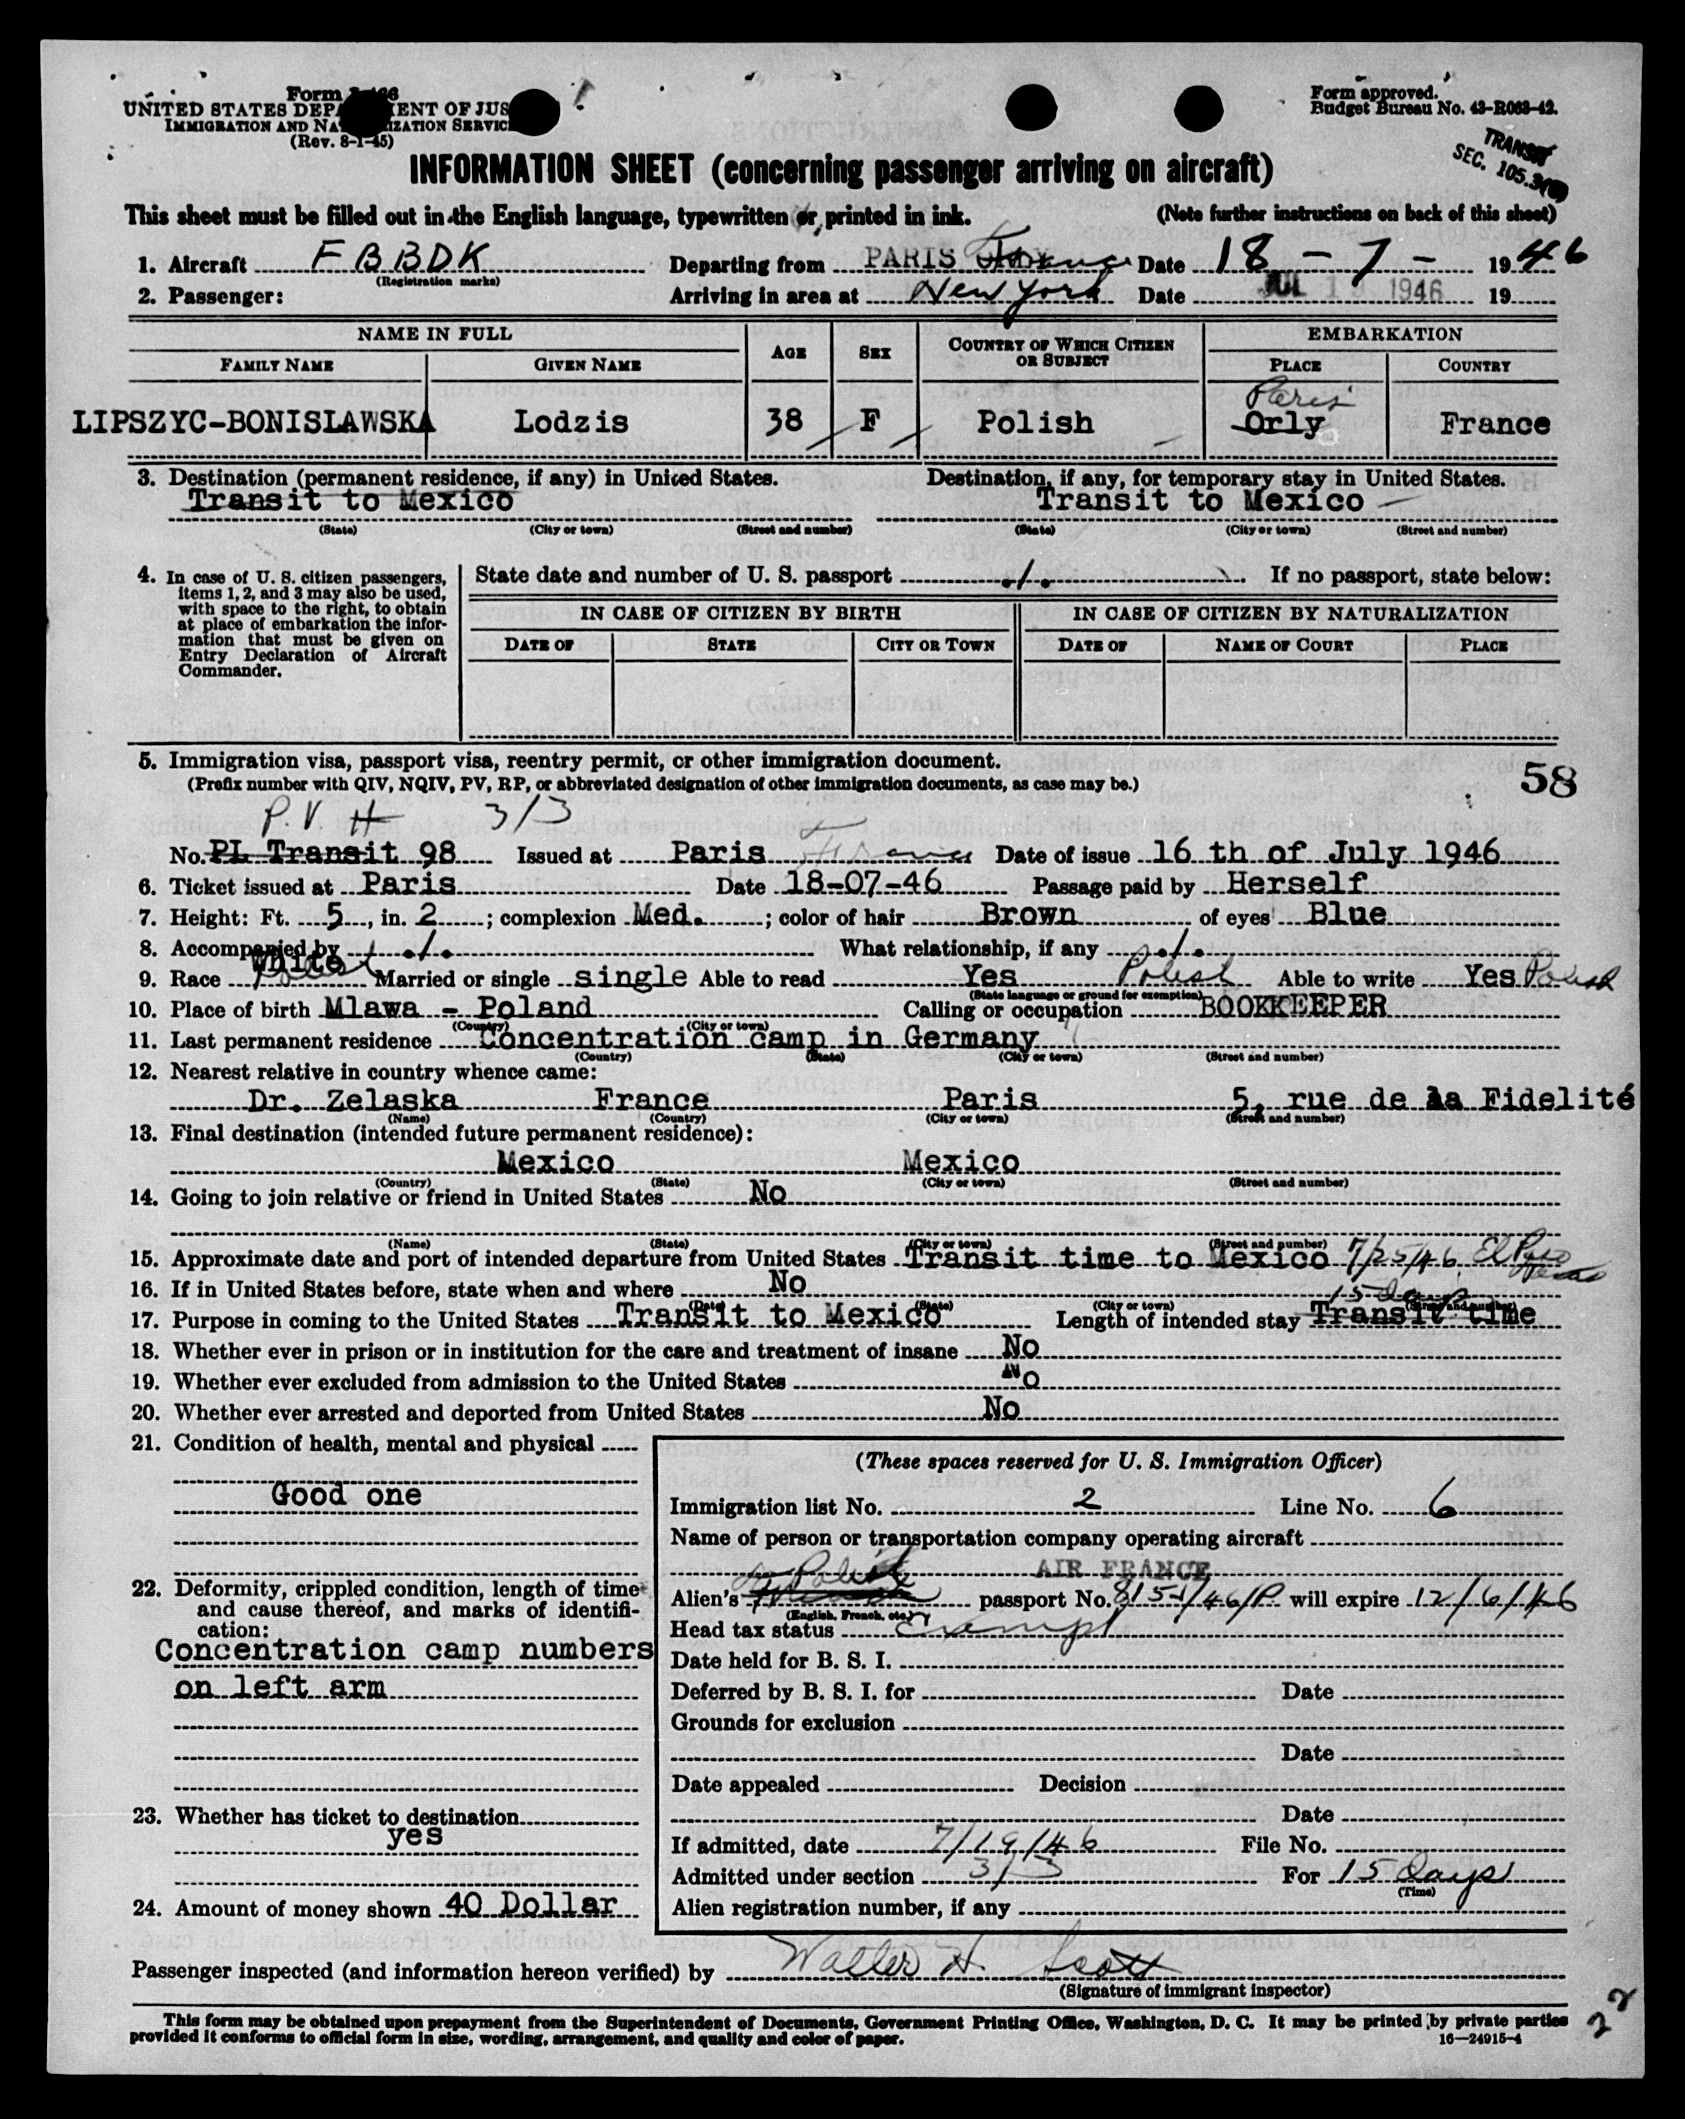 Form
UNITED STATES DEPARTMENT OF JUS
IMMIGRATION AND NATURALIZATION SERVICE
(Rev. 8-1-45)
Form approved.
Budget Bureau No. 43-R063-42.
TRANSIT
SEC. 105.3
INFORMATION SHEET (concerning passenger arriving on aircraft)
This sheet must be filled out in the English language, typewritten or printed in ink. (Note further instructions on back of this sheet)
1. Aircraft F BBDK Departing from PARIS ORLY France Date 18 - 7 - 1946
(Registration marks)
2. Passenger: Arriving in area at New York Date JUL 19 1946 19
NAME IN FULL
FAMILY NAME GIVEN NAME AGE SEX COUNTRY OF WHICH CITIZEN OR SUBJECT EMBARKATION
PLACE COUNTRY
Paris
LIPSZYC-BONISLAWSKA Lodzis 38 F Polish Orly France
3. Destination (permanent residence, if any) in United States. Destination, if any, for temporary stay in United States.
Transit to Mexico Transit to Mexico
(State) (City or town) (Street and number) (State) (City or town) (Street and number)
4. In case of U. S. citizen passengers, items 1, 2, and 3 may also be used, with space to the right, to obtain at place of embarkation the information that must be given on Entry Declaration of Aircraft Commander.
State date and number of U. S. passport ./. If no passport, state below:
IN CASE OF CITIZEN BY BIRTH IN CASE OF CITIZEN BY NATURALIZATION
DATE OF STATE CITY OR TOWN DATE OF NAME OF COURT PLACE
5. Immigration visa, passport visa, reentry permit, or other immigration document.
(Prefix number with QIV, NQIV, PV, RP, or abbreviated designation of other immigration documents, as case may be.)
58
P.V. # 3/3
No. PL Transit 98 Issued at Paris France Date of issue 16 th of July 1946
6. Ticket issued at Paris Date 18-07-46 Passage paid by Herself
7. Height: Ft. 5, in. 2; complexion Med.; color of hair Brown of eyes Blue
8. Accompanied by ./. What relationship, if any ./.
White
9. Race Polish Married or single single Able to read Yes Polish Able to write Yes Polish
(State language or ground for exemption)
10. Place of birth Mlawa - Poland Calling or occupation BOOKKEEPER
(Country) (City or town)
11. Last permanent residence Concentration camp in Germany
(Country) (State) (City or town) (Street and number)
12. Nearest relative in country whence came:
Dr. Zelaska France Paris 5, rue de la Fidelité
(Name) (Country) (City or town) (Street and number)
13. Final destination (intended future permanent residence):
Mexico Mexico
(Country) (State) (City or town) (Street and number)
14. Going to join relative or friend in United States No
(Name) (State) (City or town) (Street and number)
15. Approximate date and port of intended departure from United States Transit time to Mexico 7/25/46 El Paso Texas
16. If in United States before, state when and where No
(Date) (State) (City or town) (Street and number)
15 days
17. Purpose in coming to the United States Transit to Mexico Length of intended stay Transit time
18. Whether ever in prison or in institution for the care and treatment of insane No
19. Whether ever excluded from admission to the United States No
20. Whether ever arrested and deported from United States No
21. Condition of health, mental and physical
Good one
22. Deformity, crippled condition, length of time and cause thereof, and marks of identification:
Concentration camp numbers
on left arm
23. Whether has ticket to destination
yes
24. Amount of money shown 40 Dollar
(These spaces reserved for U. S. Immigration Officer)
Immigration list No. 2 Line No. 6
Name of person or transportation company operating aircraft
AIR FRANCE
Alien's Polish passport No. 8151/46/P will expire 12/6/46
(English, French, etc.)
Head tax status Exempt
Date held for B. S. I.
Deferred by B. S. I. for Date
Grounds for exclusion
Date
Date appealed Decision
Date
If admitted, date 7/19/46 File No.
Admitted under section 3/3 For 15 days
(Time)
Alien registration number, if any
Passenger inspected (and information hereon verified) by Walter H. Scott
(Signature of immigrant inspector)
This form may be obtained upon prepayment from the Superintendent of Documents, Government Printing Office, Washington, D. C. It may be printed by private parties
provided it conforms to official form in size, wording, arrangement, and quality and color of paper. 16-24915-4
22